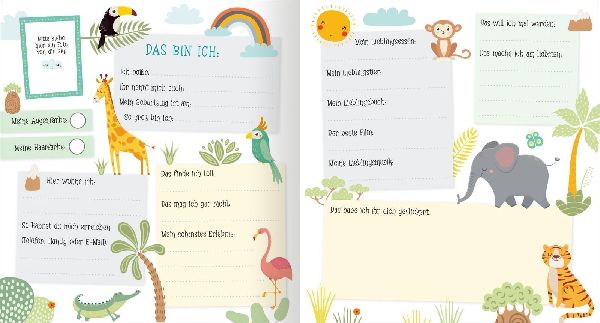 Bitte klebe
hier ein Foto
von dir ein.
DAS BIN ICH:
Ich heiße:
Ihr nennt mich auch:
Mein Geburtstag ist am:
So groß bin ich:
Meine Augenfarbe:
Meine Haarfarbe:
Hier wohne ich:
So kannst du mich erreichen
(Telefon, Handy oder E-Mail):
Das finde ich toll:
Das mag ich gar nicht:
Mein schönstes Erlebnis:
Mein Lieblingsessen:
Mein Lieblingstier:
Mein Lieblingsbuch:
Der beste Film:
Meine Lieblingsmusik:
Das will ich mal werden:
Das mache ich am liebsten:
Das habe ich für dich gekritzelt: